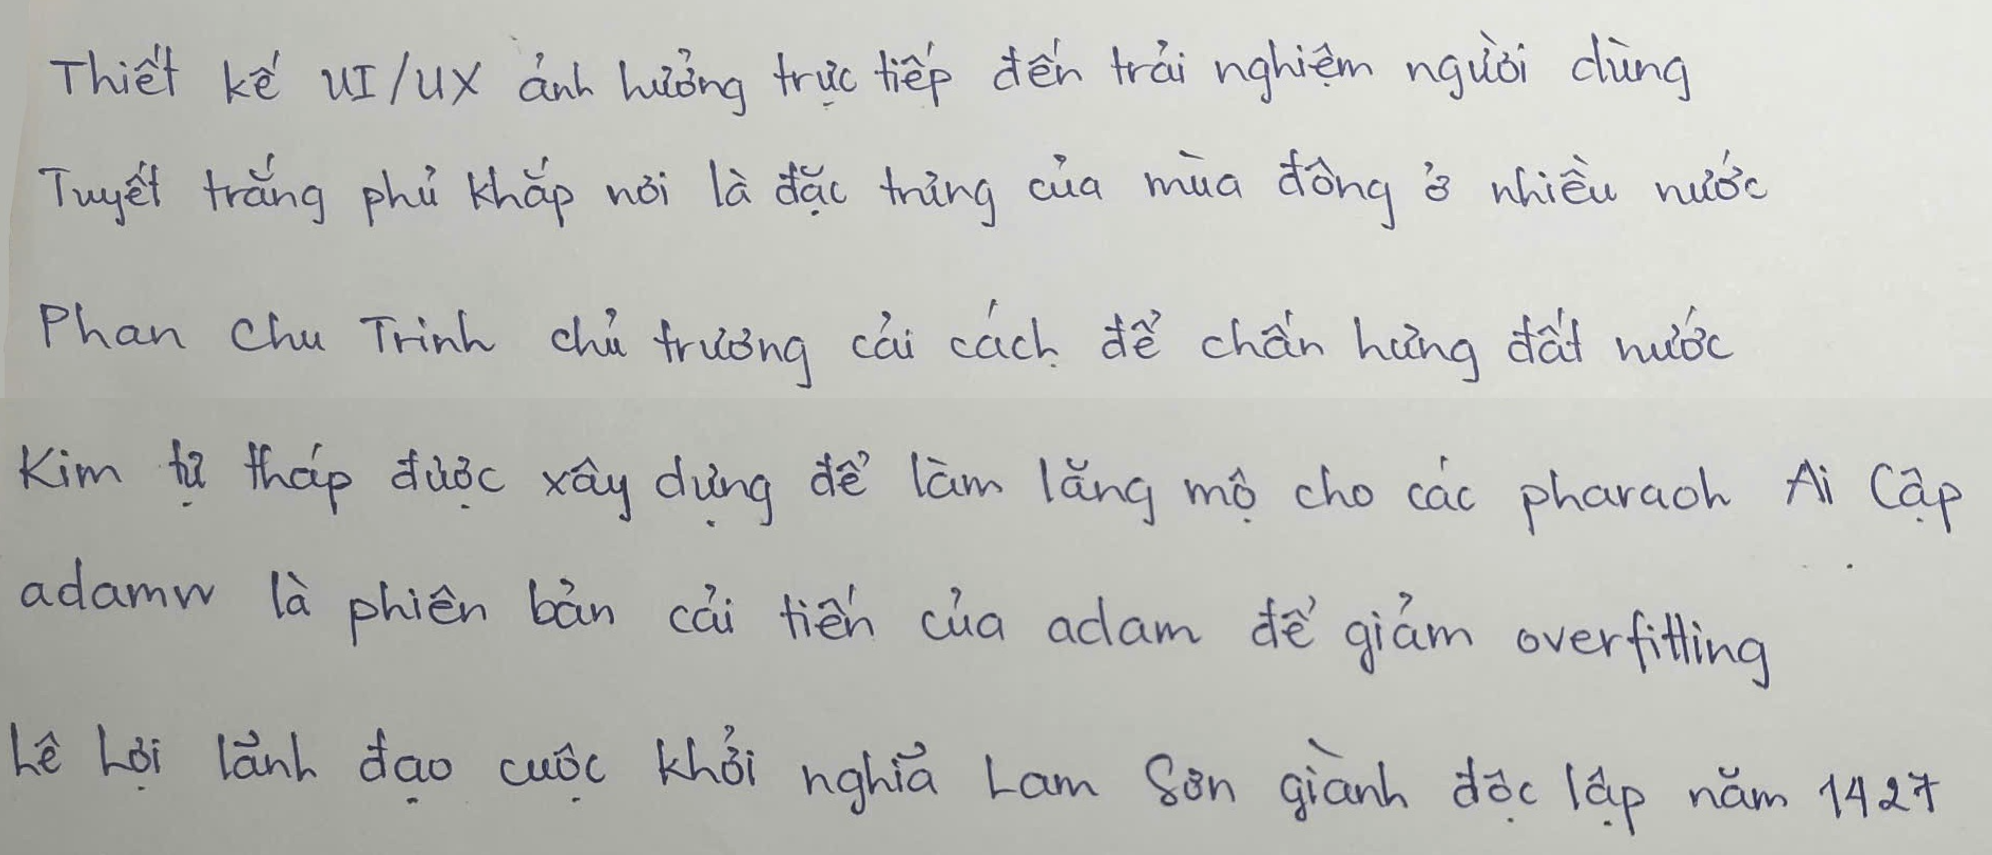 Thiết kế UI/UX ảnh hưởng trực tiếp đến trải nghiệm người dùng
Tuyết trắng phủ khắp nơi là đặc trưng của mùa đông ở nhiều nước
Phan Chu Trinh chủ trương cải cách để chấn hưng đất nước
Kim tự tháp được xây dựng để làm lăng mộ cho các pharaoh Ai Cập
adamw là phiên bản cải tiến của adam để giảm overfitting
Lê Lợi lãnh đạo cuộc khởi nghĩa Lam Sơn giành độc lập năm 1427